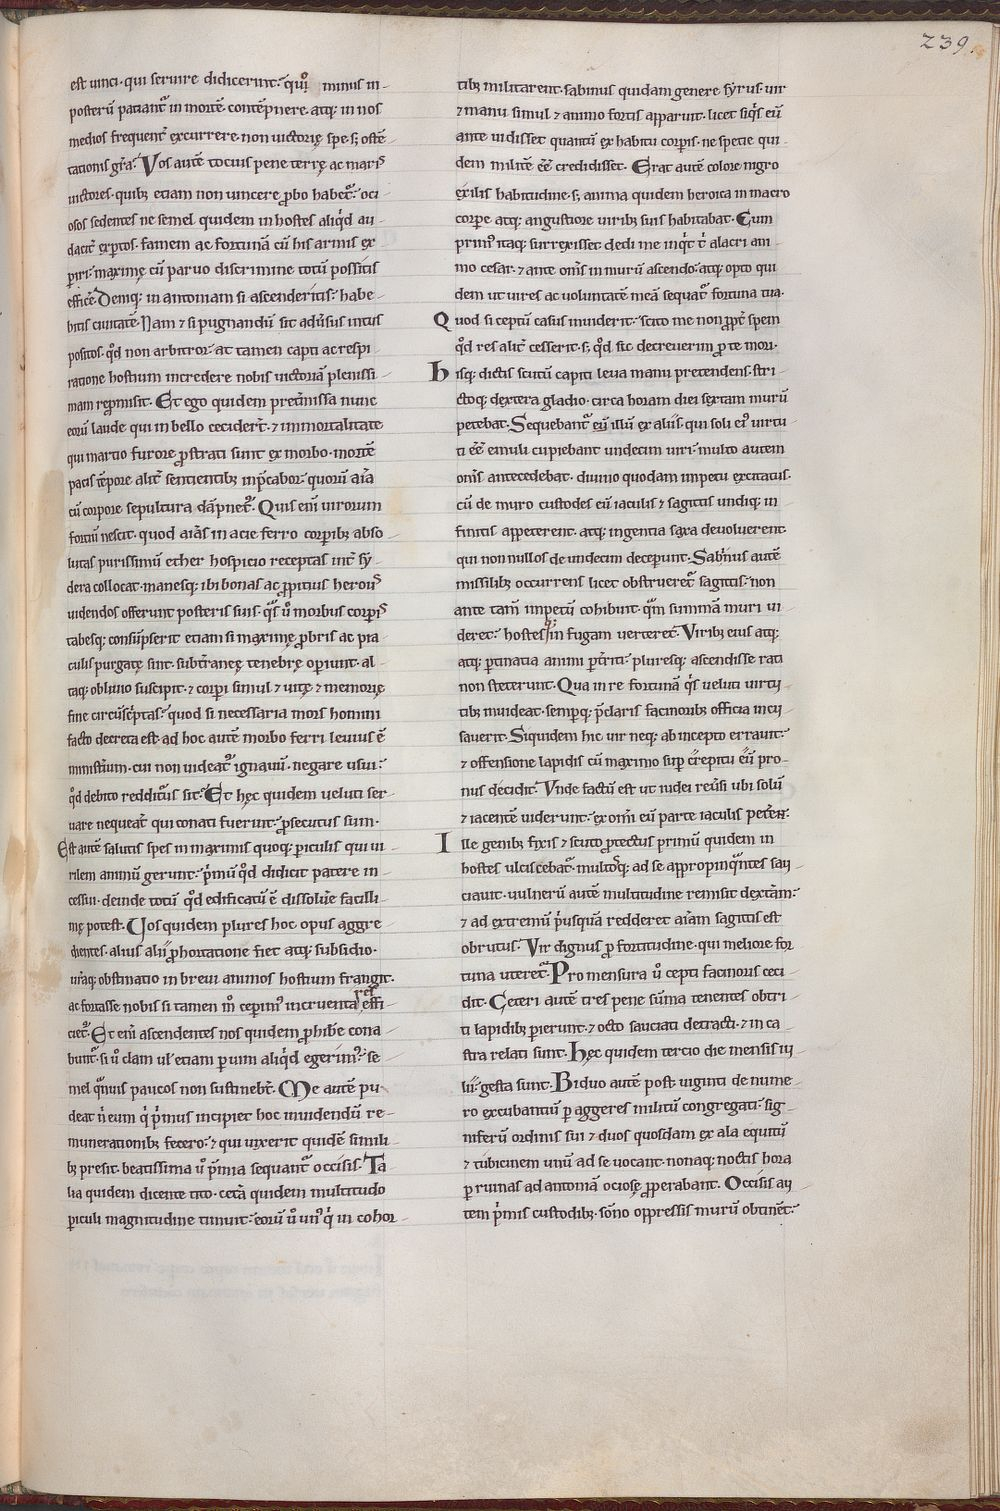 239.
est uinci· qui seruire didicerint:́ quõ minus in
posterũ patiant᷑ in mortẽ contẽpnere· atq; in nos
medios frequent᷑ excurrere· non uictorię spe· s; ostẽ
tationis gr̃a:́ Vos autẽ tocius pene terrę ac maris
uictores· quibꝫ etiam non uincere ꝓbo habet᷑:́ oci
osos sedentes ne semel quidem in hostes aliq̇d au
dacit᷑ exptos· famem ac fortunã cũ his armis ex
ꝑiri:́ maximę cũ paruo discrimine totũ possitis
efficẽ· Demq; in antoniam si ascenderitis:́ habe
bitis ciuitatẽ· Nam ⁊ si pugnandũ sit adũsus intus
positos· q̇d non arbitror· at tamen capti ac respi
ratione hostium incredere nobis uictoriã plenissi
mam repmisit· Et ego quidem pret᷑missa nunc
eorũ laude qui in bello cecider̃t· ⁊ immortalitate
qui martio furore ꝓstrati sunt ex morbo· mortẽ
pacis tẽpore alit᷑ sentientibꝫ imp̃cabor:́ quorũ aĩa
cũ corpore sepultura dãpnet᷑· Quis eni uirorum
fortiũ nescit· quod aĩas in acie ferro corꝑibꝫ abso
lutas purissimũ ether hospicio receptas int᷑ sy
dera collocat· manesq; ibi bonas ac ꝓpitius herous
uidendos offerunt posteris suis· q̇s ů morbus corꝑis
tabesq; consũpserit etiam si maximę ꝓbris ac pia
culis purgatę sint· subt᷑ranęę tenebrę oꝑiunt· al
taq; obliuio suscipit· ⁊ corꝑi simul ⁊ uitę ⁊ memorię
fine circũsc̃ptas:́ quod si necessaria mors homini
facto decreta est· ad hoc autẽ morbo ferri leuius ẽ
minist᷑ium· cui non uideat᷑ ignauũ· negare usui:́
q̇d debito redditurus sit:́ Et hęc quidem ueluti ser
uare nequeat᷑ qui conati fuerint:́ ꝓsecutus sum·
Est autẽ salutis spes in maximis quoq; ꝑiculis qui ui
rilem animũ gerunt:́ p̃mũ q̇d didicit patere in
cessui· deinde totũ q̇d edificatũ ẽ dissolũe facilli
mę potest· Vos quidem plures hoc opus aggre
dientes· alius alii ꝓhortatione fiet atq; subsidio·
ur̃aq; obstinatio in breui animos hostium frangit·
ac fortasse nobis si tamen m̊ ceꝑim᷑ incruenta res effi
ciet᷑· Et eni ascendentes nos quidem ꝓhibẽ cona
bunt᷑· si ů clam ul̃ etiam ꝑ uim aliq̇d egerim᷑:́ se
mel q̃muis paucos non sustinebt̃· Me autẽ pu
deat ñ eum q̇ p̃mus incipiet hoc inuidendũ re
munerationibꝫ fecero:́ ⁊ qui uixerit quidẽ simili
bꝫ presit· beatissima ů p̃mia sequant᷑ occisis· Ta
lia quidem dicente tito· cet᷑a quidem multitudo
ꝑiculi magnitudine timuit:́ eorũ ů un᷑ q̇ in cohor
tibꝫ militarent· sabinus quidam genere syrus· uir
⁊ manu simul ⁊ animo fortis apparuit· licet siq̇s eũ
ante uidisset quantũ ex habitu corꝑis· ne specie qui
dem militẽ ẽẽ credidisset· Erat autẽ colore nigro
exilis habitudine· s; anima quidem heroica in macro
corpe atq; angustiore uiribꝫ suis habitabat· Cum
prim᷑ itaq; surrexisset· dedi me inq̇t t̃ alacri ani
mo cesar· ⁊ ante om̃s in murũ ascendo:́ atq; opto qui
dem ut uires ac voluntatẽ meã sequat᷑ fortuna tua·
Quod si ceptũ casus inuiderit:́ scito me non ꝓpt᷑ spem
q̇d res alit᷑ cesserit· s; q̇d sic decreuerim ꝓ te mori·
hisq; dictis scutũ capiti leua manu pretendens· stri
ctoq; dextera gladio· circa horam diei sextam murũ
petebat· Sequebant᷑ eũ illũ ex aliis· qui soli ei᷑ uirtu
ti ẽẽ emuli cupiebant undecim uiri:́ multo autem
om̃s antecedebat· diuino quodam impetu excitatus·
cũ de muro custodes eũ iaculis ⁊ sagittis undiq; in
finitis appeterent· atq; ingentia saxa deuoluerent·
qui non nullos de undecim deceperunt· Sabinus autẽ
missilibꝫ occurrens licet obstrueret᷑ sagittis:́ non
ante tam̃ impetũ cohibuit· q̃m summã muri ui
deret:́ hostesq; in fugam uerteret· Viribꝫ eius atq;
atq; ꝑtinatia animi ꝑt᷑riti:́ pluresq; ascendisse rati
non steterunt· Qua in re fortunã q̇s ueluti uirtu
tibꝫ inuideat· sempq; p̃claris facinoribꝫ officia incu
sauerit· Siquidem hic uir neq; ab incepto errauit:́
⁊ offensione lapidis cũ maximo sup c᷑repitu eũ pro
nus decidit:́ Vnde factũ est ut iudei reũsi ubi solũ
⁊ iacentẽ uiderunt:́ ex om̃i eũ parte iaculis peterẽt·
Ille genibꝫ fixis ⁊ scuto ꝓtectus primũ quidem in
hostes ulciscebat᷑· multosq; ad se appropinq̃ntes sau
ciauit· uulnerũ autẽ multitudine remisit dextãm:́
⁊ ad extremũ p̃usquã redderet aĩam sagittis est
obrutus:́ Vir dignus ꝓ fortitudine· qui meliore for
tuna uteret᷑· Pro mensura ů cepti facinoris ceci
dit· Ceteri autẽ tres pene sũma tenentes obtri
ti lapidibꝫ ꝑierunt· ⁊ octo sauciati detracti· ⁊ in ca
stra relati sunt· Hęc quidem tercio die mensis iu
lii:́ gesta sunt· Biduo autẽ post uiginti de nume
ro excubantiũ ꝑ aggeres militũ congregati· sig
niferũ ordinis sui ⁊ duos quosdam ex ala equitũ
⁊ tubicinem unũ ad se uocant· nonaq; noctis hora
ꝑ ruinas ad antoniã ociosę ꝓperabant· Occisis au
tem p̃mis custodibꝫ· sõno oppressis murũ obtinẽt:́